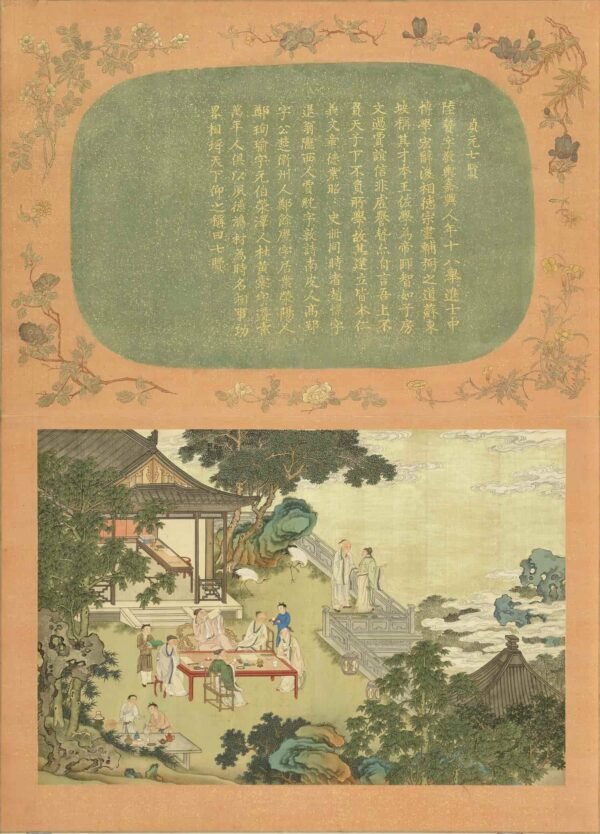 貞元七賢
陸贄字敬輿嘉興人年十八舉進士中
博學宏辭後相德宗盡輔弼之道蘇東
坡稱其才本王佐學為帝師智如子房
文過賈誼信非虛譽贄亦自言吾上不
負天子下不負所學故其皆本仁
義文章德業昭〻史冊同時者趙憬字
退翁隴西人賈耽字敦詩南皮人高郢
字公楚衛州人鄭餘慶字居業滎陽人
鄭珣瑜字元伯滎澤人杜黃裳字遵素
萬年人俱以夙德鴻材為時名相事功
畧相埒天下仰之稱曰七賢